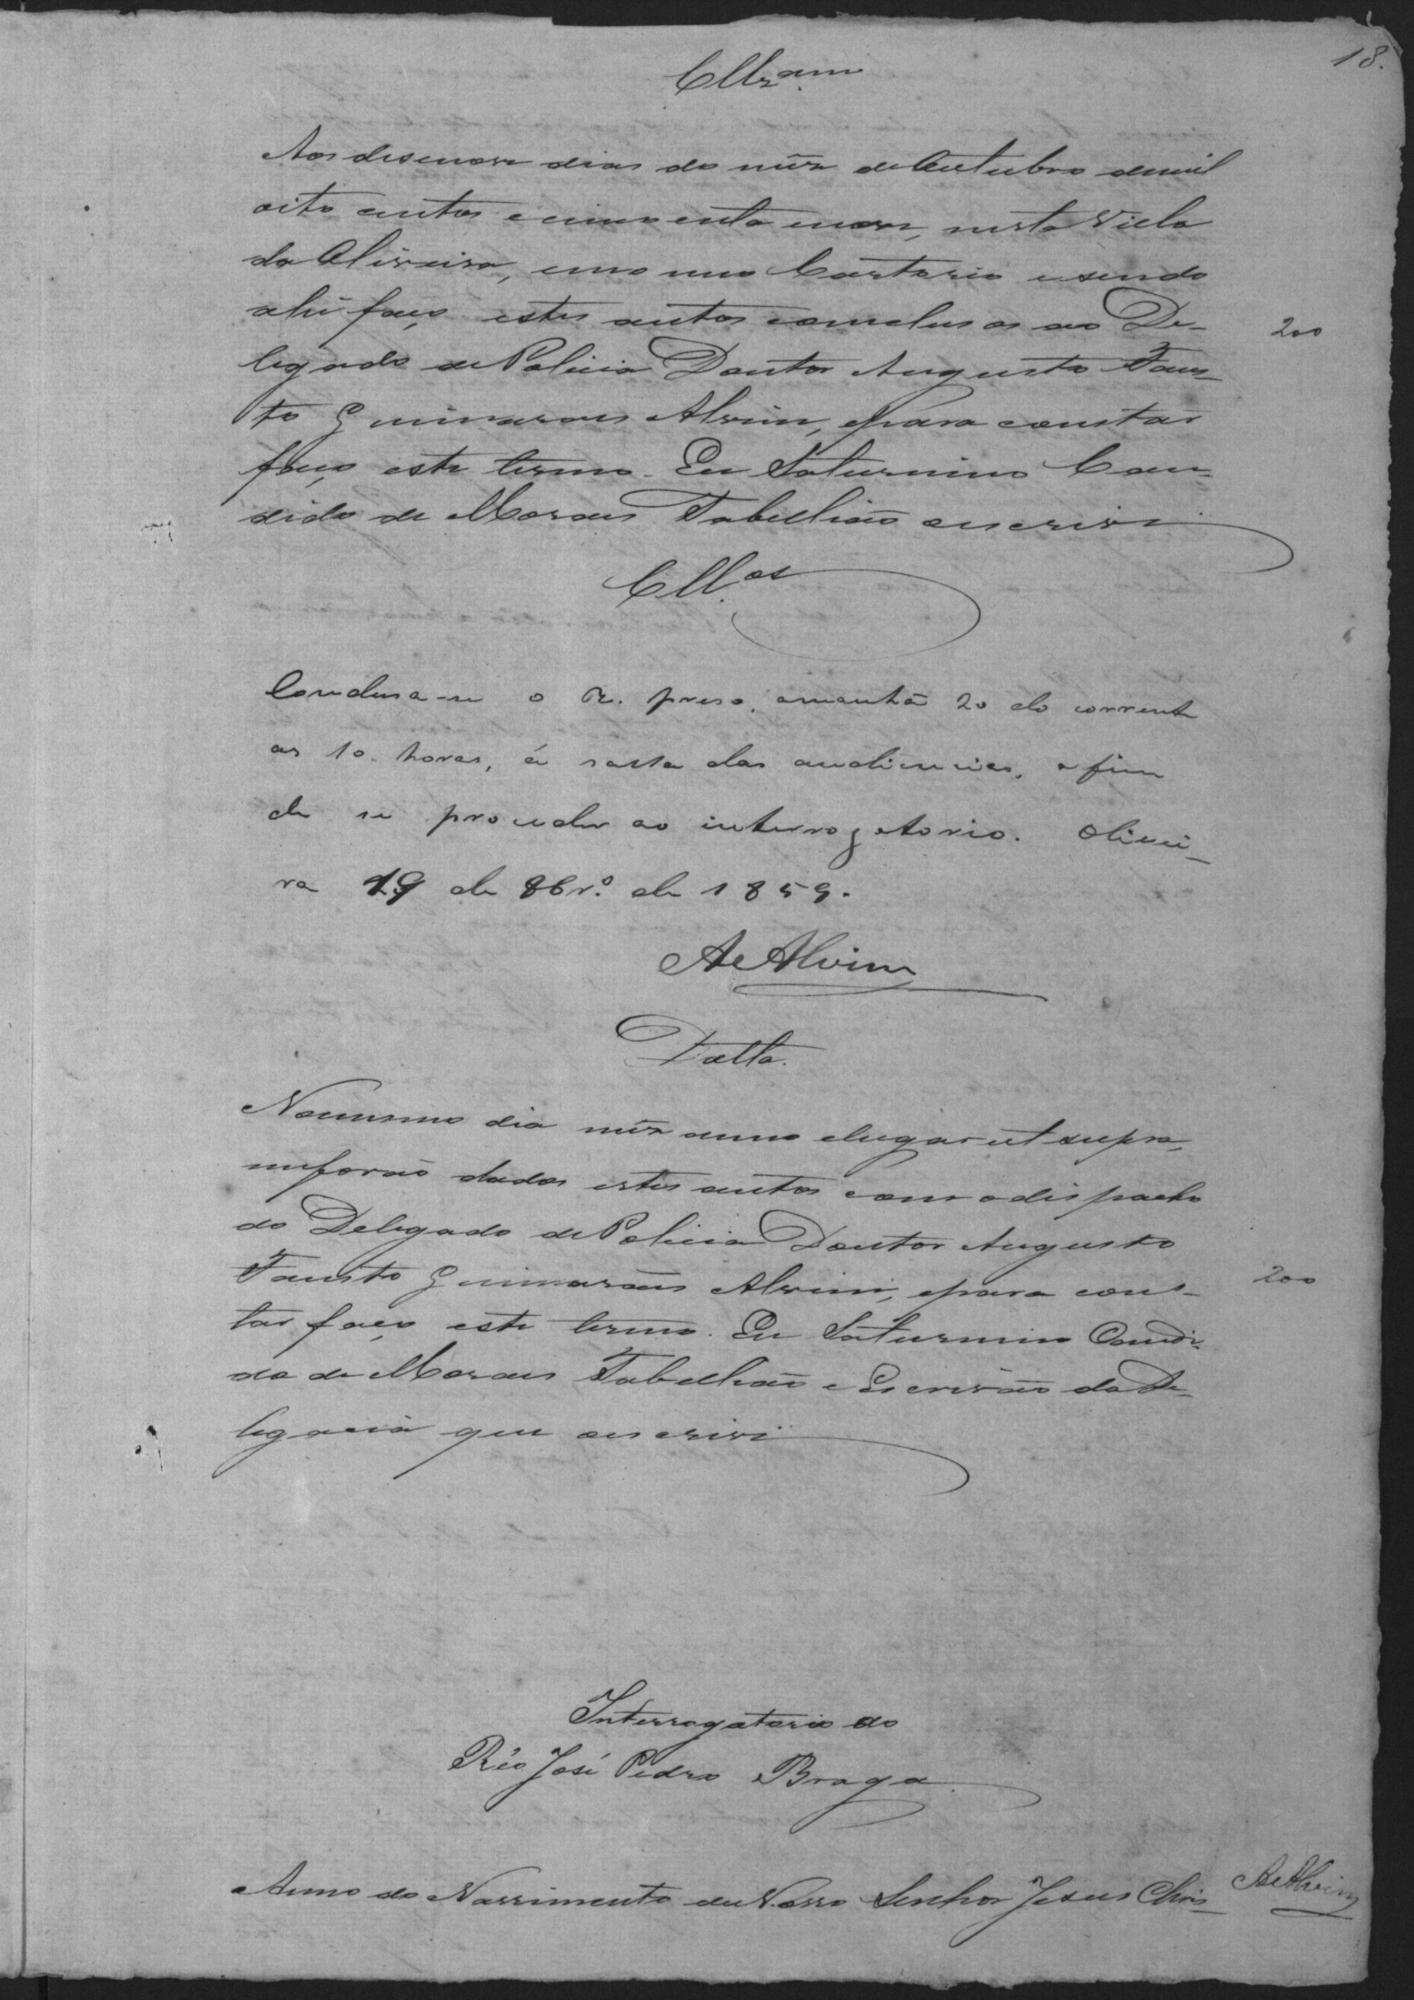 18.
Aos desenove dias do mês de Outubro de mil
oito centos e cincoenta e nove, nesta Villa
da Oliveira, em o meu Cartorio e sendo
ahi faço estes autos conclusos ao De-
200
legado de Policia Doutor Augusto Faus-
to Guimaraes Alvim, e para constar
faço este termo. Eu Saturnino Can-
dido de Moraes Tabellião escrevi
Cllos
Condusa-se o R. preso, amanhã 20 do corrente
as 10 horas, á salla das audiencias, a fim
de se proceder ao interrogatorio. Olivei-
ra 19 de 8br.º de 1859.
A e Alvim
Datta.
No mesmo dia mês anno e lugar ut supra,
me forão dados estes autos com o dispacho
do Delegado de Policia Doutor Augusto
Fausto Guimarães Alvim, e para cons-
200
tar faço este termo. Eu Saturnino Candi-
do de Moraes Tabellião e Escrivão da De-
legacia que escrevi
Interrogatorio ao
Réo José Pedro Braga
Anno do Nassimento de Nosso Senhor Jesus Chris-
A e Alvim